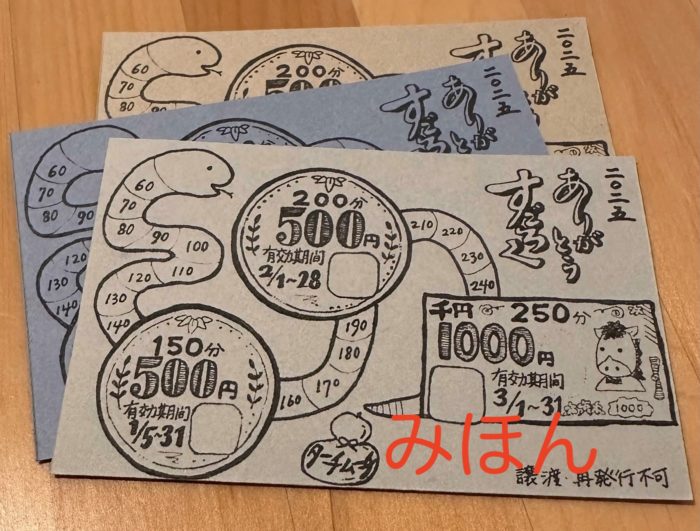 60
70
80
200分
500
ありがとう
すごろく
二〇二五
60
70
80
90
120
130
140
ありがとう
すごろく
二〇二五
60
70
80
90
100
110
120
130
140
150分
500円
有効期間
1/5~31
160
170
180
190
200分
500円
有効期間
2/1~28
210
220
230
240
千円 250分
1000円
有効期間
3/1~31
1000
ありがとう
すごろく
二〇二五
ターチムーチ
みほん
譲渡・再発行不可